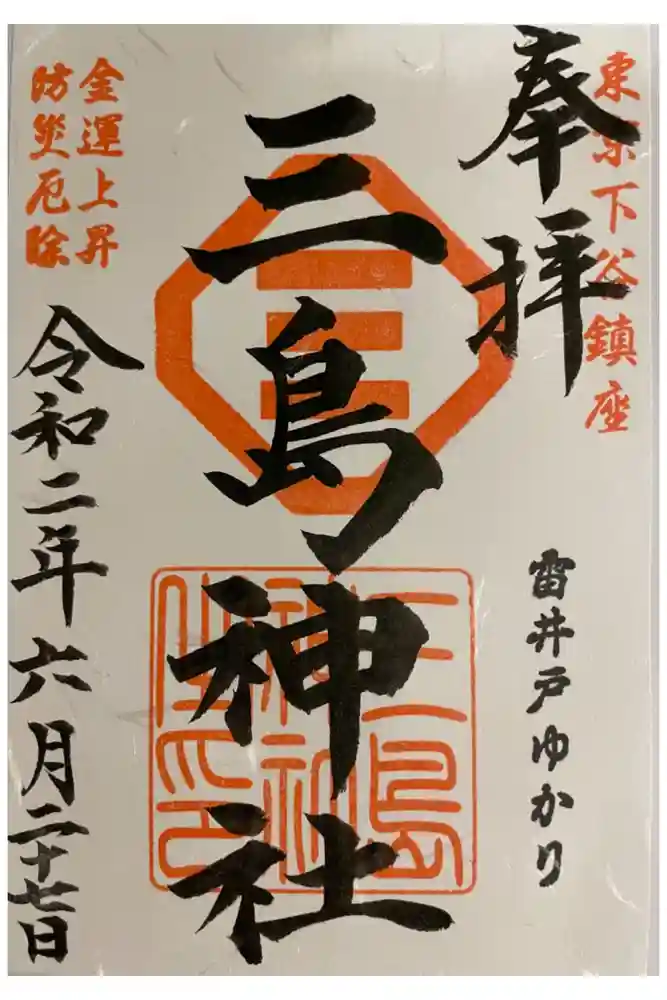 東京下谷鎮座
奉拝
雷井戸ゆかり
三島神社
三島
神社
之印
金運上昇
防災厄除
令和二年六月二十七日